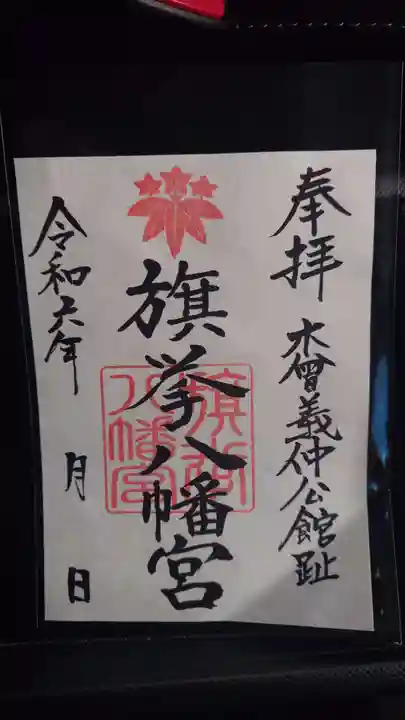 奉拝
木曽義仲公館趾
旗挙八幡宮
令和六年
月
日